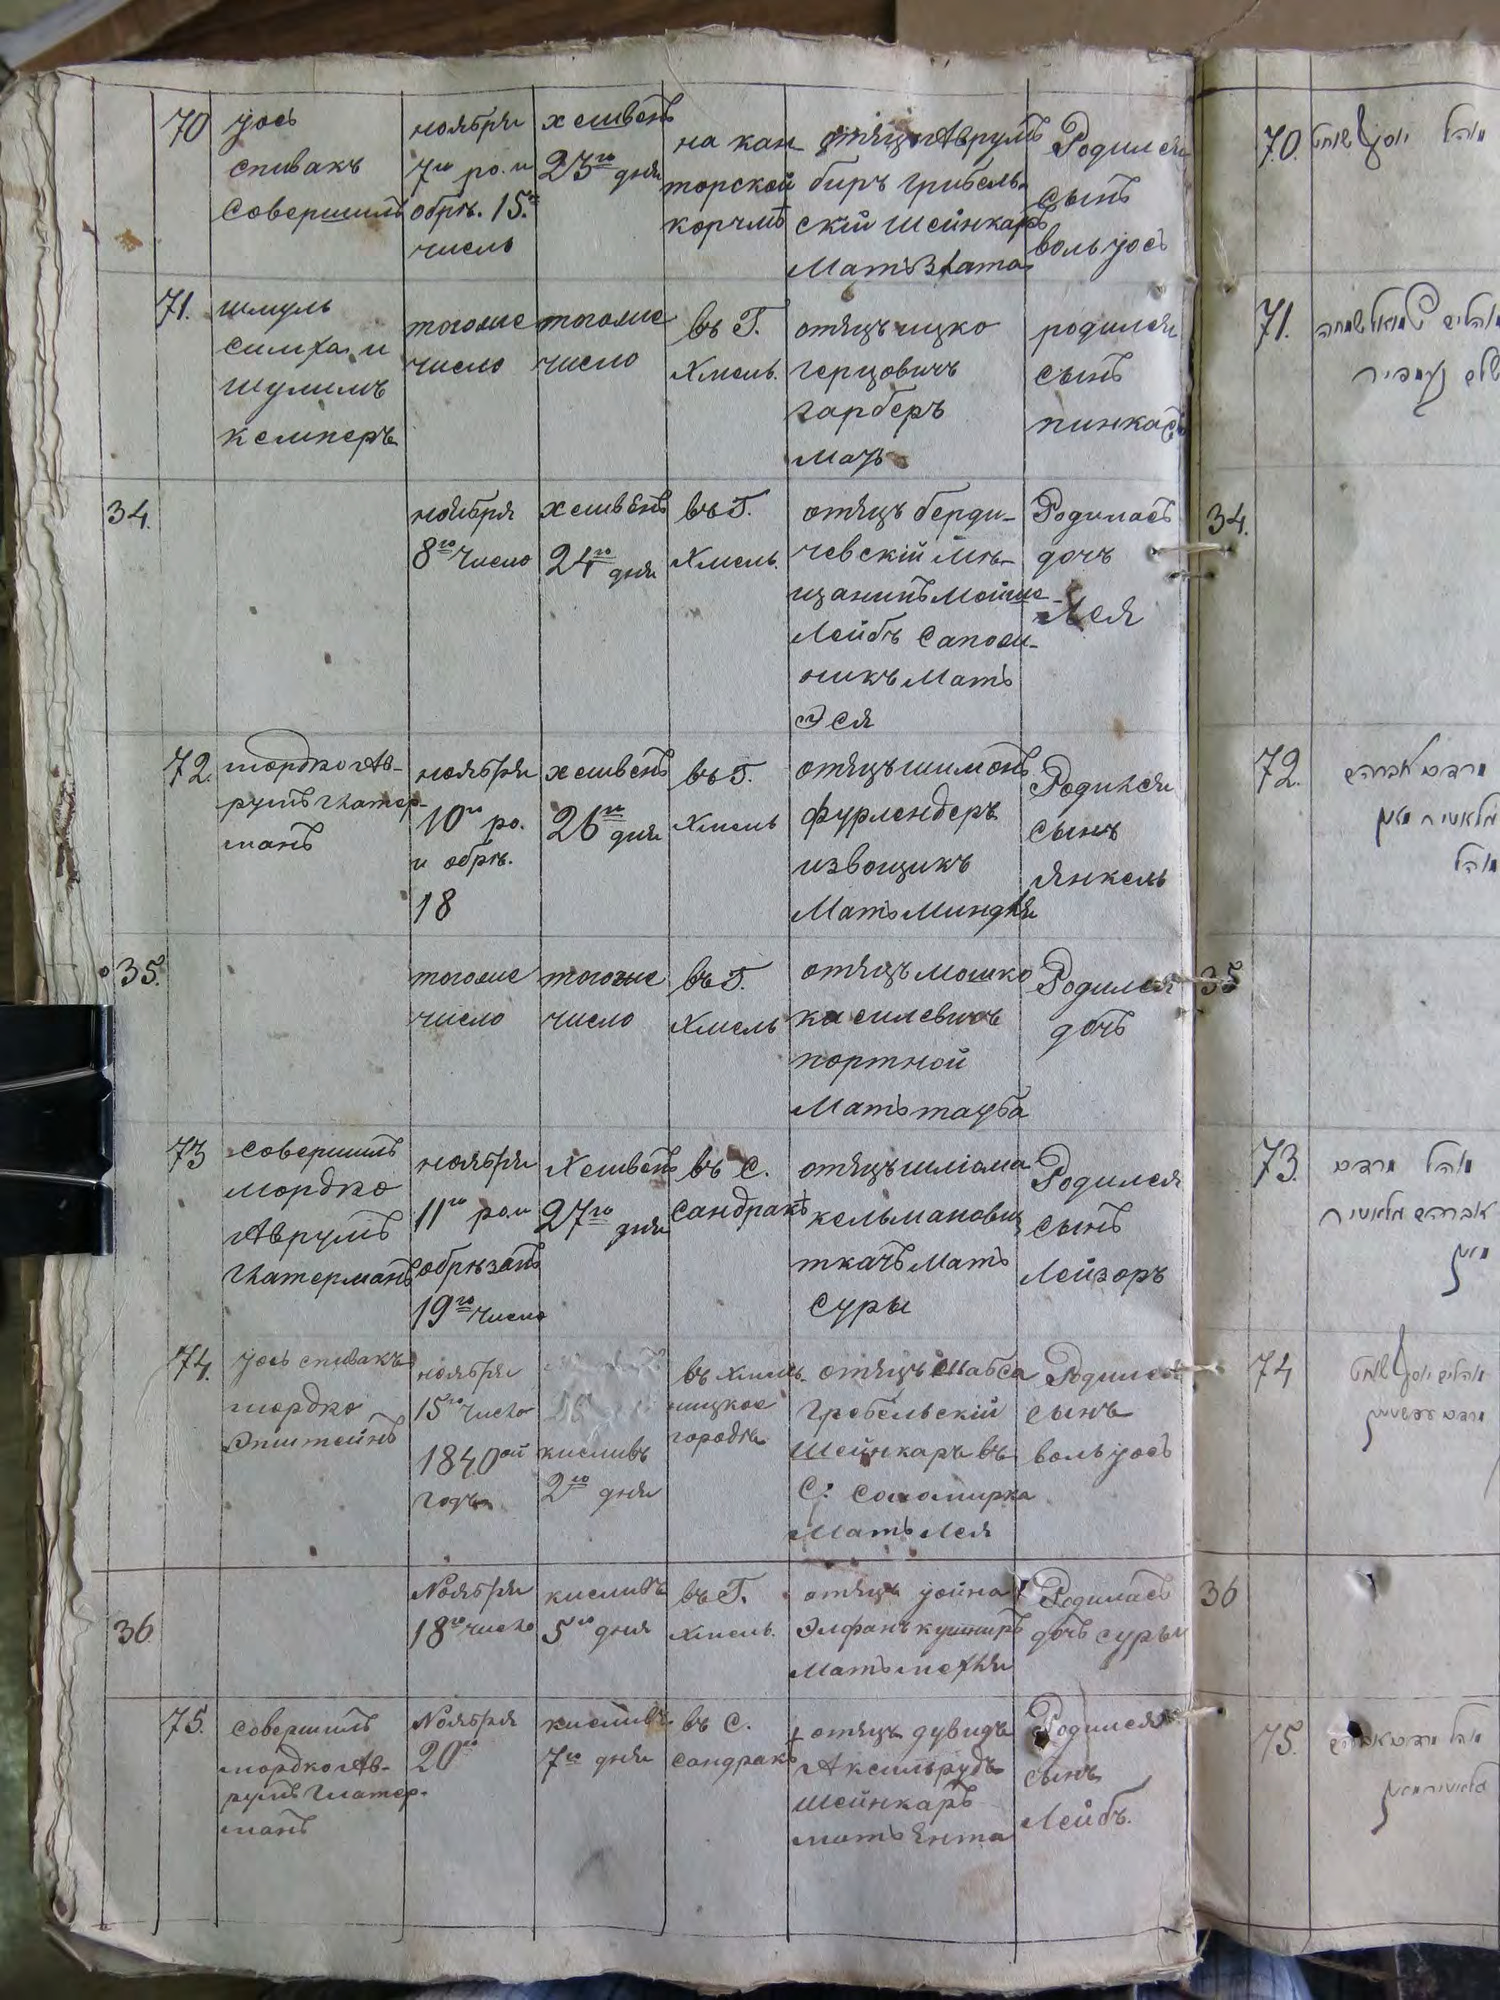 70
Іось
спивакъ
совершилъ
ноября
7го ро. и
обрѣ. 15го
число
хешвенъ
23го дня
на кан
торской
корчмѣ
отяцъ Аврумъ
беръ гребель
скій шейнкаръ
Мать Злата
Родился
сынъ
воль Іось
70.
מוהל יוסף שוחט
71.
шмуль
симха и
шулимъ
кемперъ
тогоже
число
тогоже
число
въ Г.
Хмель.
отяцъ ицко
герцовичъ
гарберъ
родился
сынъ
пинкасъ
71.
34.
ноября
8го число
хешвенъ
24го дня
въ Г.
Хмель.
отяцъ берди-
чевскій Мѣ-
щанинъ Мойше
Лейбъ сапож-
никъ Мать
Эся
Родилась
дочъ
Лея
34.
72.
мордко Ав-
румъ Гатер-
манъ
ноября
10го ро.
и обрѣ.
18
хешвенъ
26го дня
въ Г.
Хмель
отяцъ шимонъ
фурлендеръ
извощикъ
Мать Миндля
Родился
сынъ
Янкель
72.
מרדכי אברהם
מוהל
35.
тогоже
число
тогоже
число
въ Г.
Хмель
отяцъ мошко
касилевичъ
портной
Мать тауба
Родился
дочъ
35
73
совершилъ
Мордко
Аврумъ
Гатерманъ
ноября
11го ро. и
обрѣзанъ
19го число
Хешвенъ
27го дня
въ С.
Сандракѣ
отяцъ шліома
кельманович
ткачъ Мать
суры
Родился
сынъ
Лейзоръ
73.
מוהל מרדכי
74.
Іось спивакъ
мордко
Эпштейнъ
ноября
15го число
1840ой
годъ
кисливъ
2го дня
въ хмель
ницкое
городке
отяцъ Шабса
Гребельскій
Шейнкаръ въ
С: Соломирка
Мать Лея
Родился
сынъ
воль Іось
74
36
Ноября
18го число
кисливъ
5го дня
въ Г.
Хмель.
отяцъ Іойна
Элфанъ кушниръ
Родилась
дочъ суры
36
75.
совершилъ
мордко Ав-
румъ Гатер-
манъ
Ноября
20го
кисливъ
7го дня
въ С.
Сандракѣ
отяцъ дувидъ
Аксильрудъ
Шейнкаръ
мать Ента
Родился
сынъ
Лейбъ.
75.